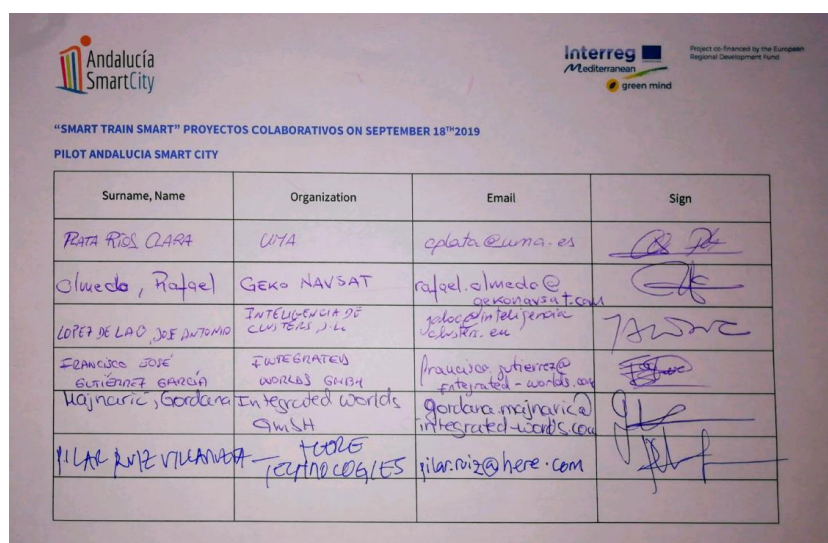 Andalucía
SmartCity
Interreg
Mediterranean
green mind
Project co-financed by the European
Regional Development Fund
“SMART TRAIN SMART” PROYECTOS COLABORATIVOS ON SEPTEMBER 18TH2019
PILOT ANDALUCIA SMART CITY
Surname, Name Organization Email Sign
PLATA RÍOS CLARA UMA cplata@uma.es
Olmedo, Rafael GEKO NAVSAT rafael.olmedo@
gekonavsat.com
LOPEZ DE LA O, JOSE ANTONIO INTELIGENCIA DE
CLUSTERS S.L. jaloc@inteligencia
clusters.eu
FRANCISCO JOSÉ
GUTIÉRREZ GARCÍA INTEGRATED
WORLDS GMBH francisco.gutierrez@
integrated-worlds.com
Majnarić, Gordana Integrated Worlds
GmbH gordana.majnaric@
integrated-worlds.com
PILAR RUIZ HERE
TECHNOLOGIES pilar.ruiz@here.com